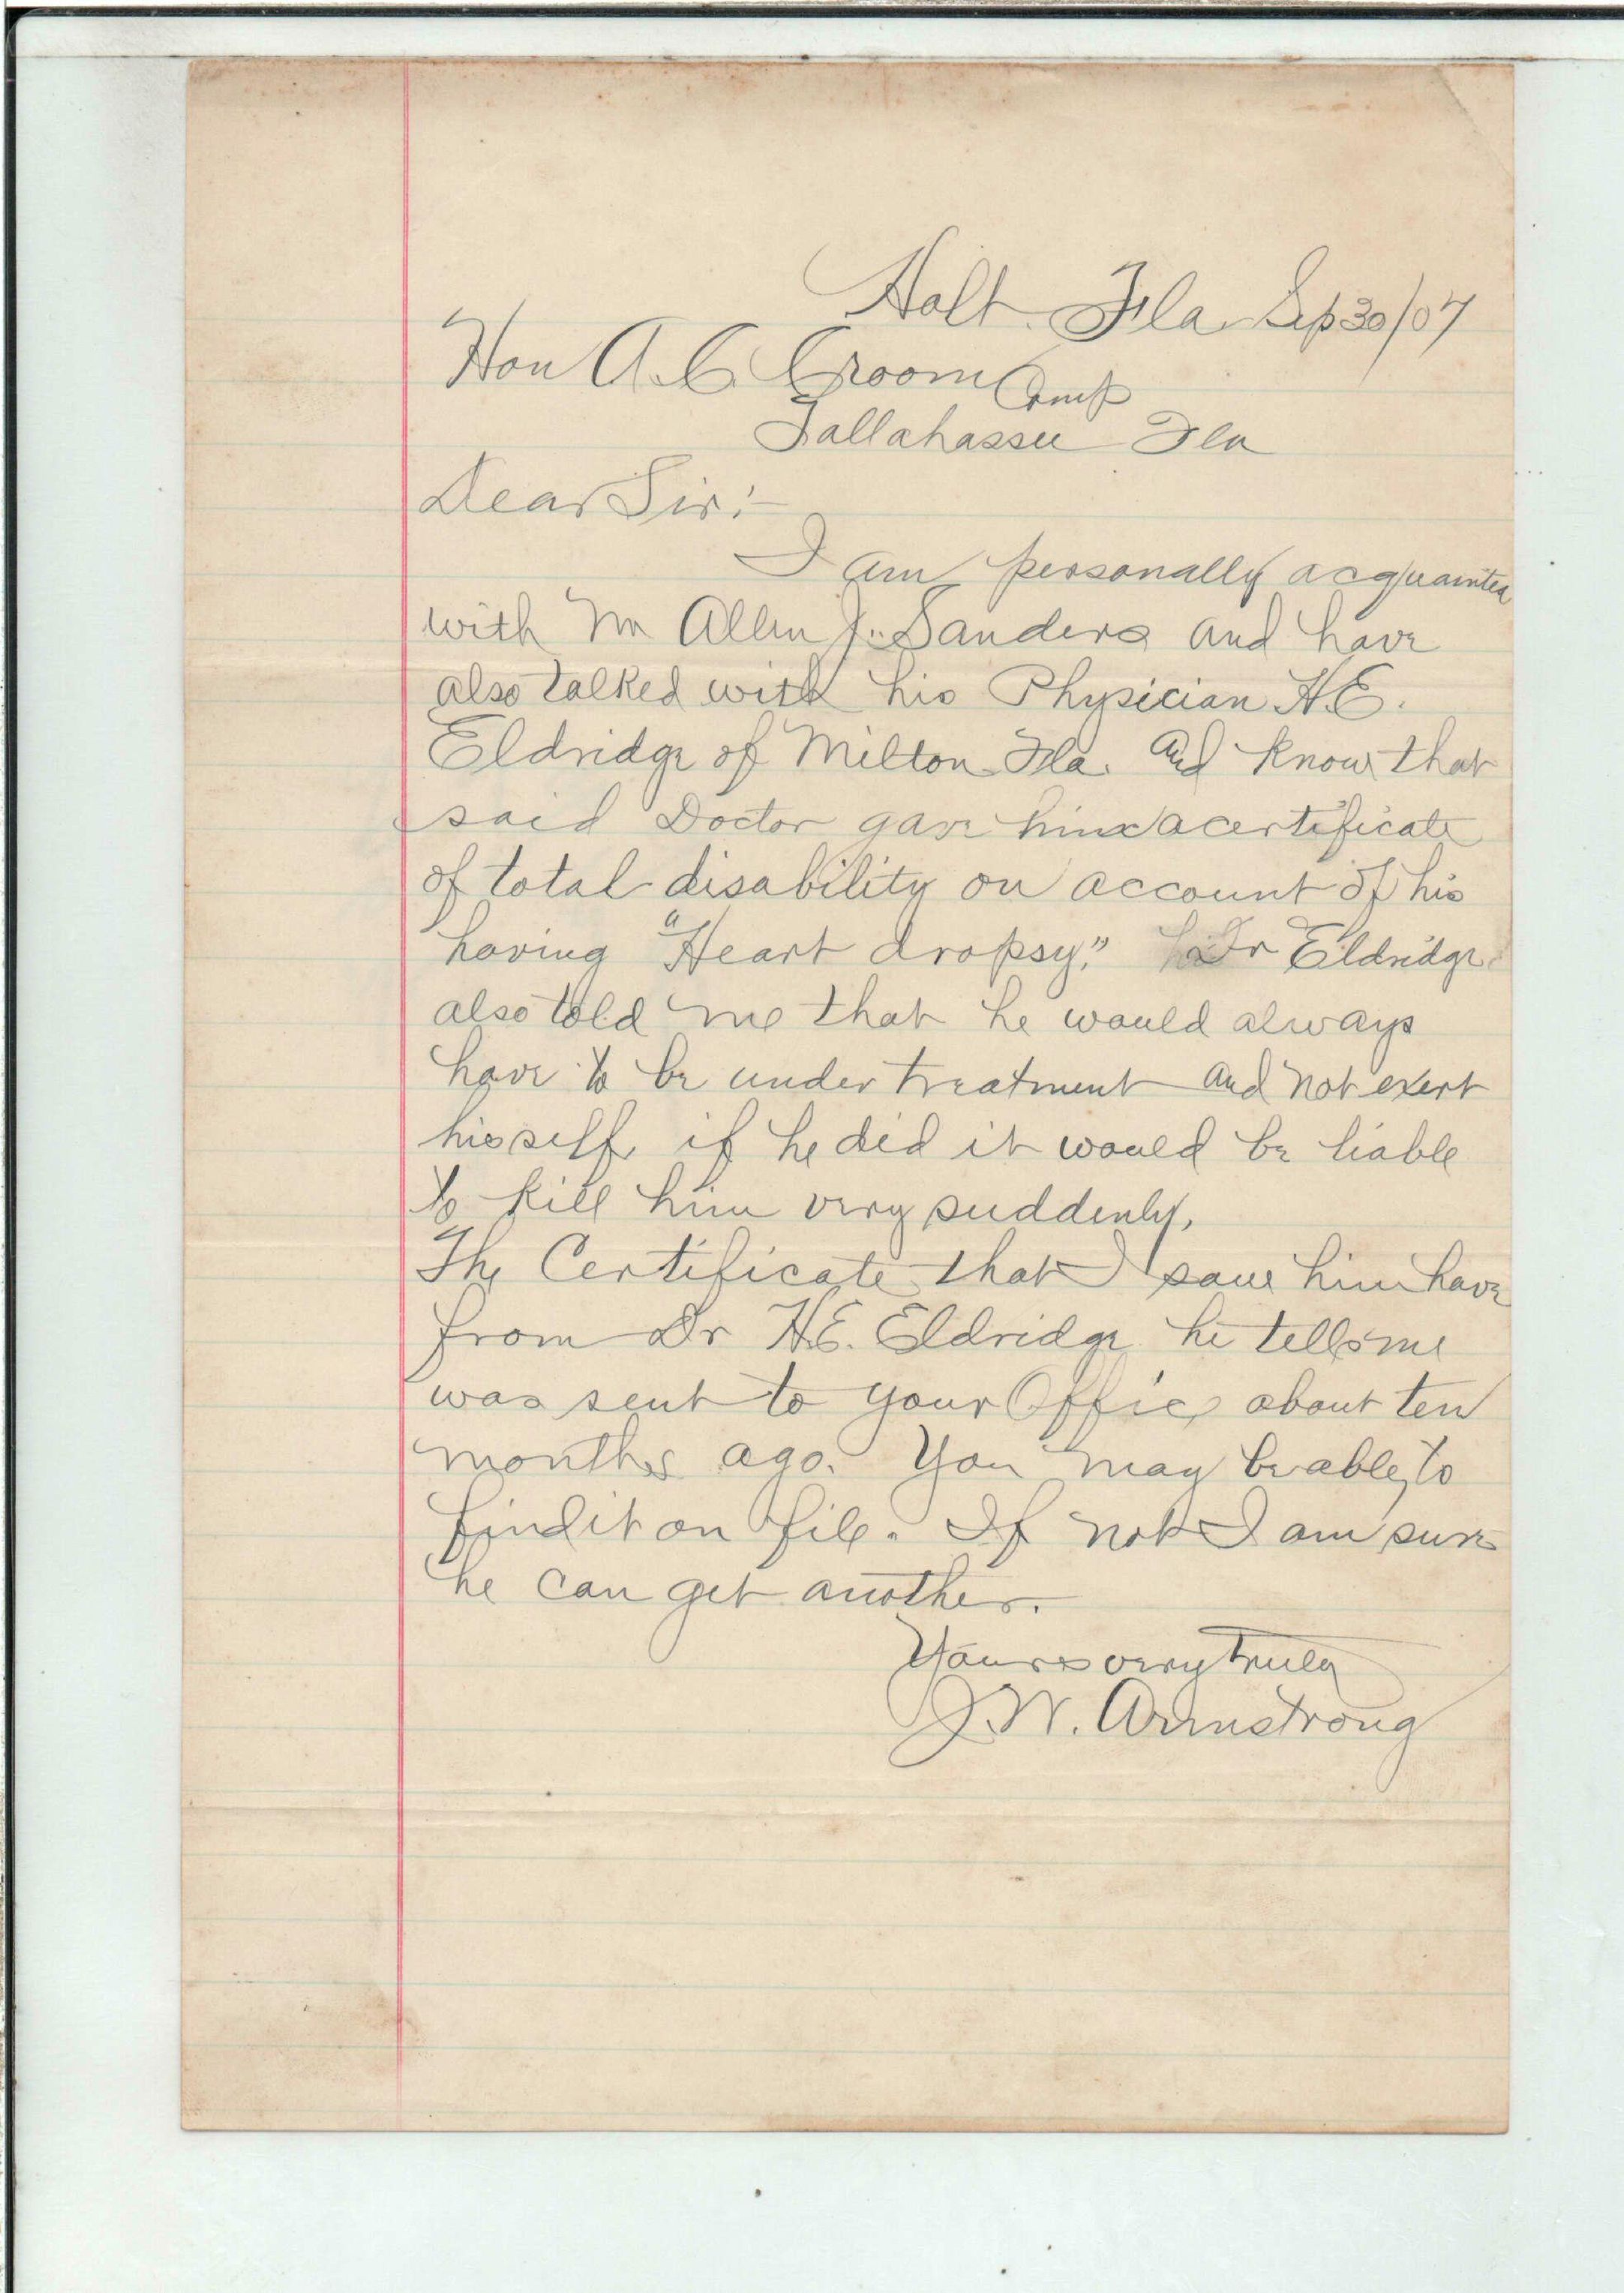 Holt. Fla Sep 30/07
Hon A. C. Croom Comp
Tallahassee Fla
Dear Sir:-
I am personally acquainted
with Mr Allen J. Sanders and have
also talked with his Physician H.E.
Eldridge of Milton Fla. and know that
said Doctor gave him a certificate
of total disability on account of his
having "Heart dropsy." Dr Eldridge
also told me that he would always
have to be under treatment and not exert
hisself, if he did it would be liable
to kill him very suddenly.
The Certificate that I saw him have
from Dr H.E. Eldridge he tells me
was sent to your Office about ten
months ago. You may be able to
find it on file. If not I am sure
he can get another.
Yours very truly
J. W. Armstrong